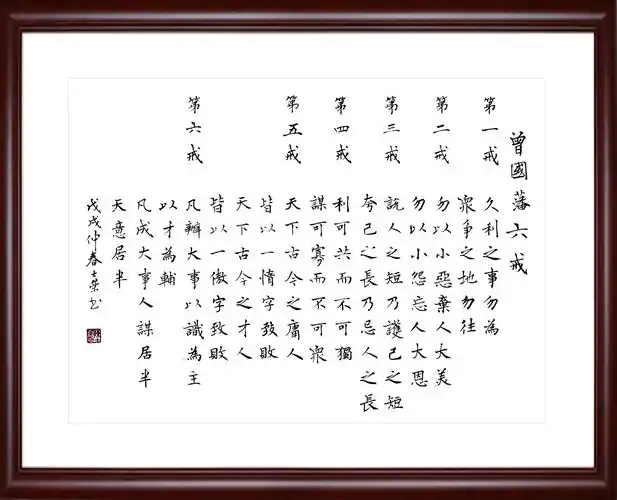 曾國藩六戒
第一戒 久利之事勿為
眾爭之地勿往
第二戒 勿以小惡棄人大美
勿以小怨忘人大恩
第三戒 說人之短乃護己之短
夸己之長乃忌人之長
第四戒 利可共而不可獨
謀可寡而不可眾
第五戒 天下古今之庸人
皆以一惰字致敗
天下古今之才人
皆以一傲字致敗
第六戒 凡辦大事以識為主
以才為輔
凡成大事人謀居半
天意居半
戊戌仲春士荣书